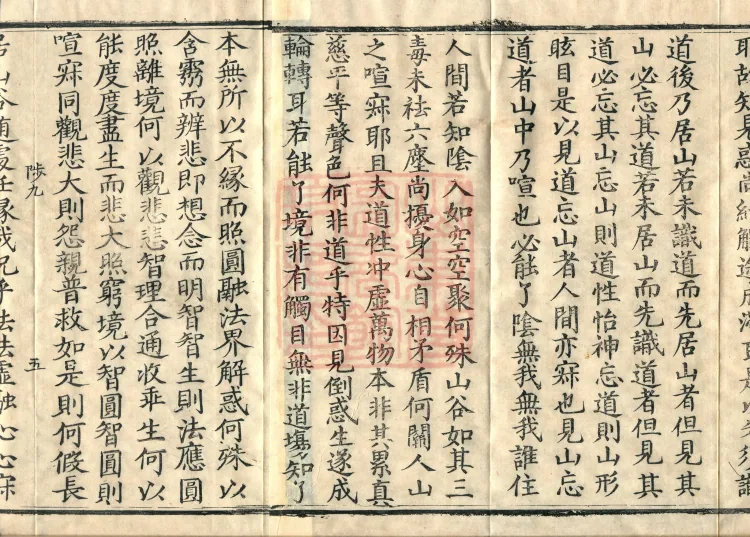 耶故知見惑尚紆觸途
道後乃居山若未識道而先居山者但見其
山必忘其道若未居山而先識道者但見其
道必忘其山忘山則道性怡神忘道則山形
眩目是以見道忘山者人間亦寂也見山忘
道者山中乃喧也必能了陰無我無我誰住
人間若知陰入如空空聚何殊山谷如其三
毒未袪六塵尚擾身心自相矛盾何關人山
之喧寂耶且夫道性冲虛萬物本非其累真
慈平等聲色何非道乎特因見倒惑生遂成
輪轉耳若能了境非有觸目無非道塲知了
本無所以不緣而照圓融法界解惑何殊以
含靈而辨悲即想念而明智智生則法應圓
照離境何以觀悲悲智理合通收乖生何以
能度度盡生而悲大照窮境以智圓智圓則
喧寂同觀悲大則怨親普救如是則何假長
陟九 五
居山谷隨處任緣哉況乎法法虛融心心寂